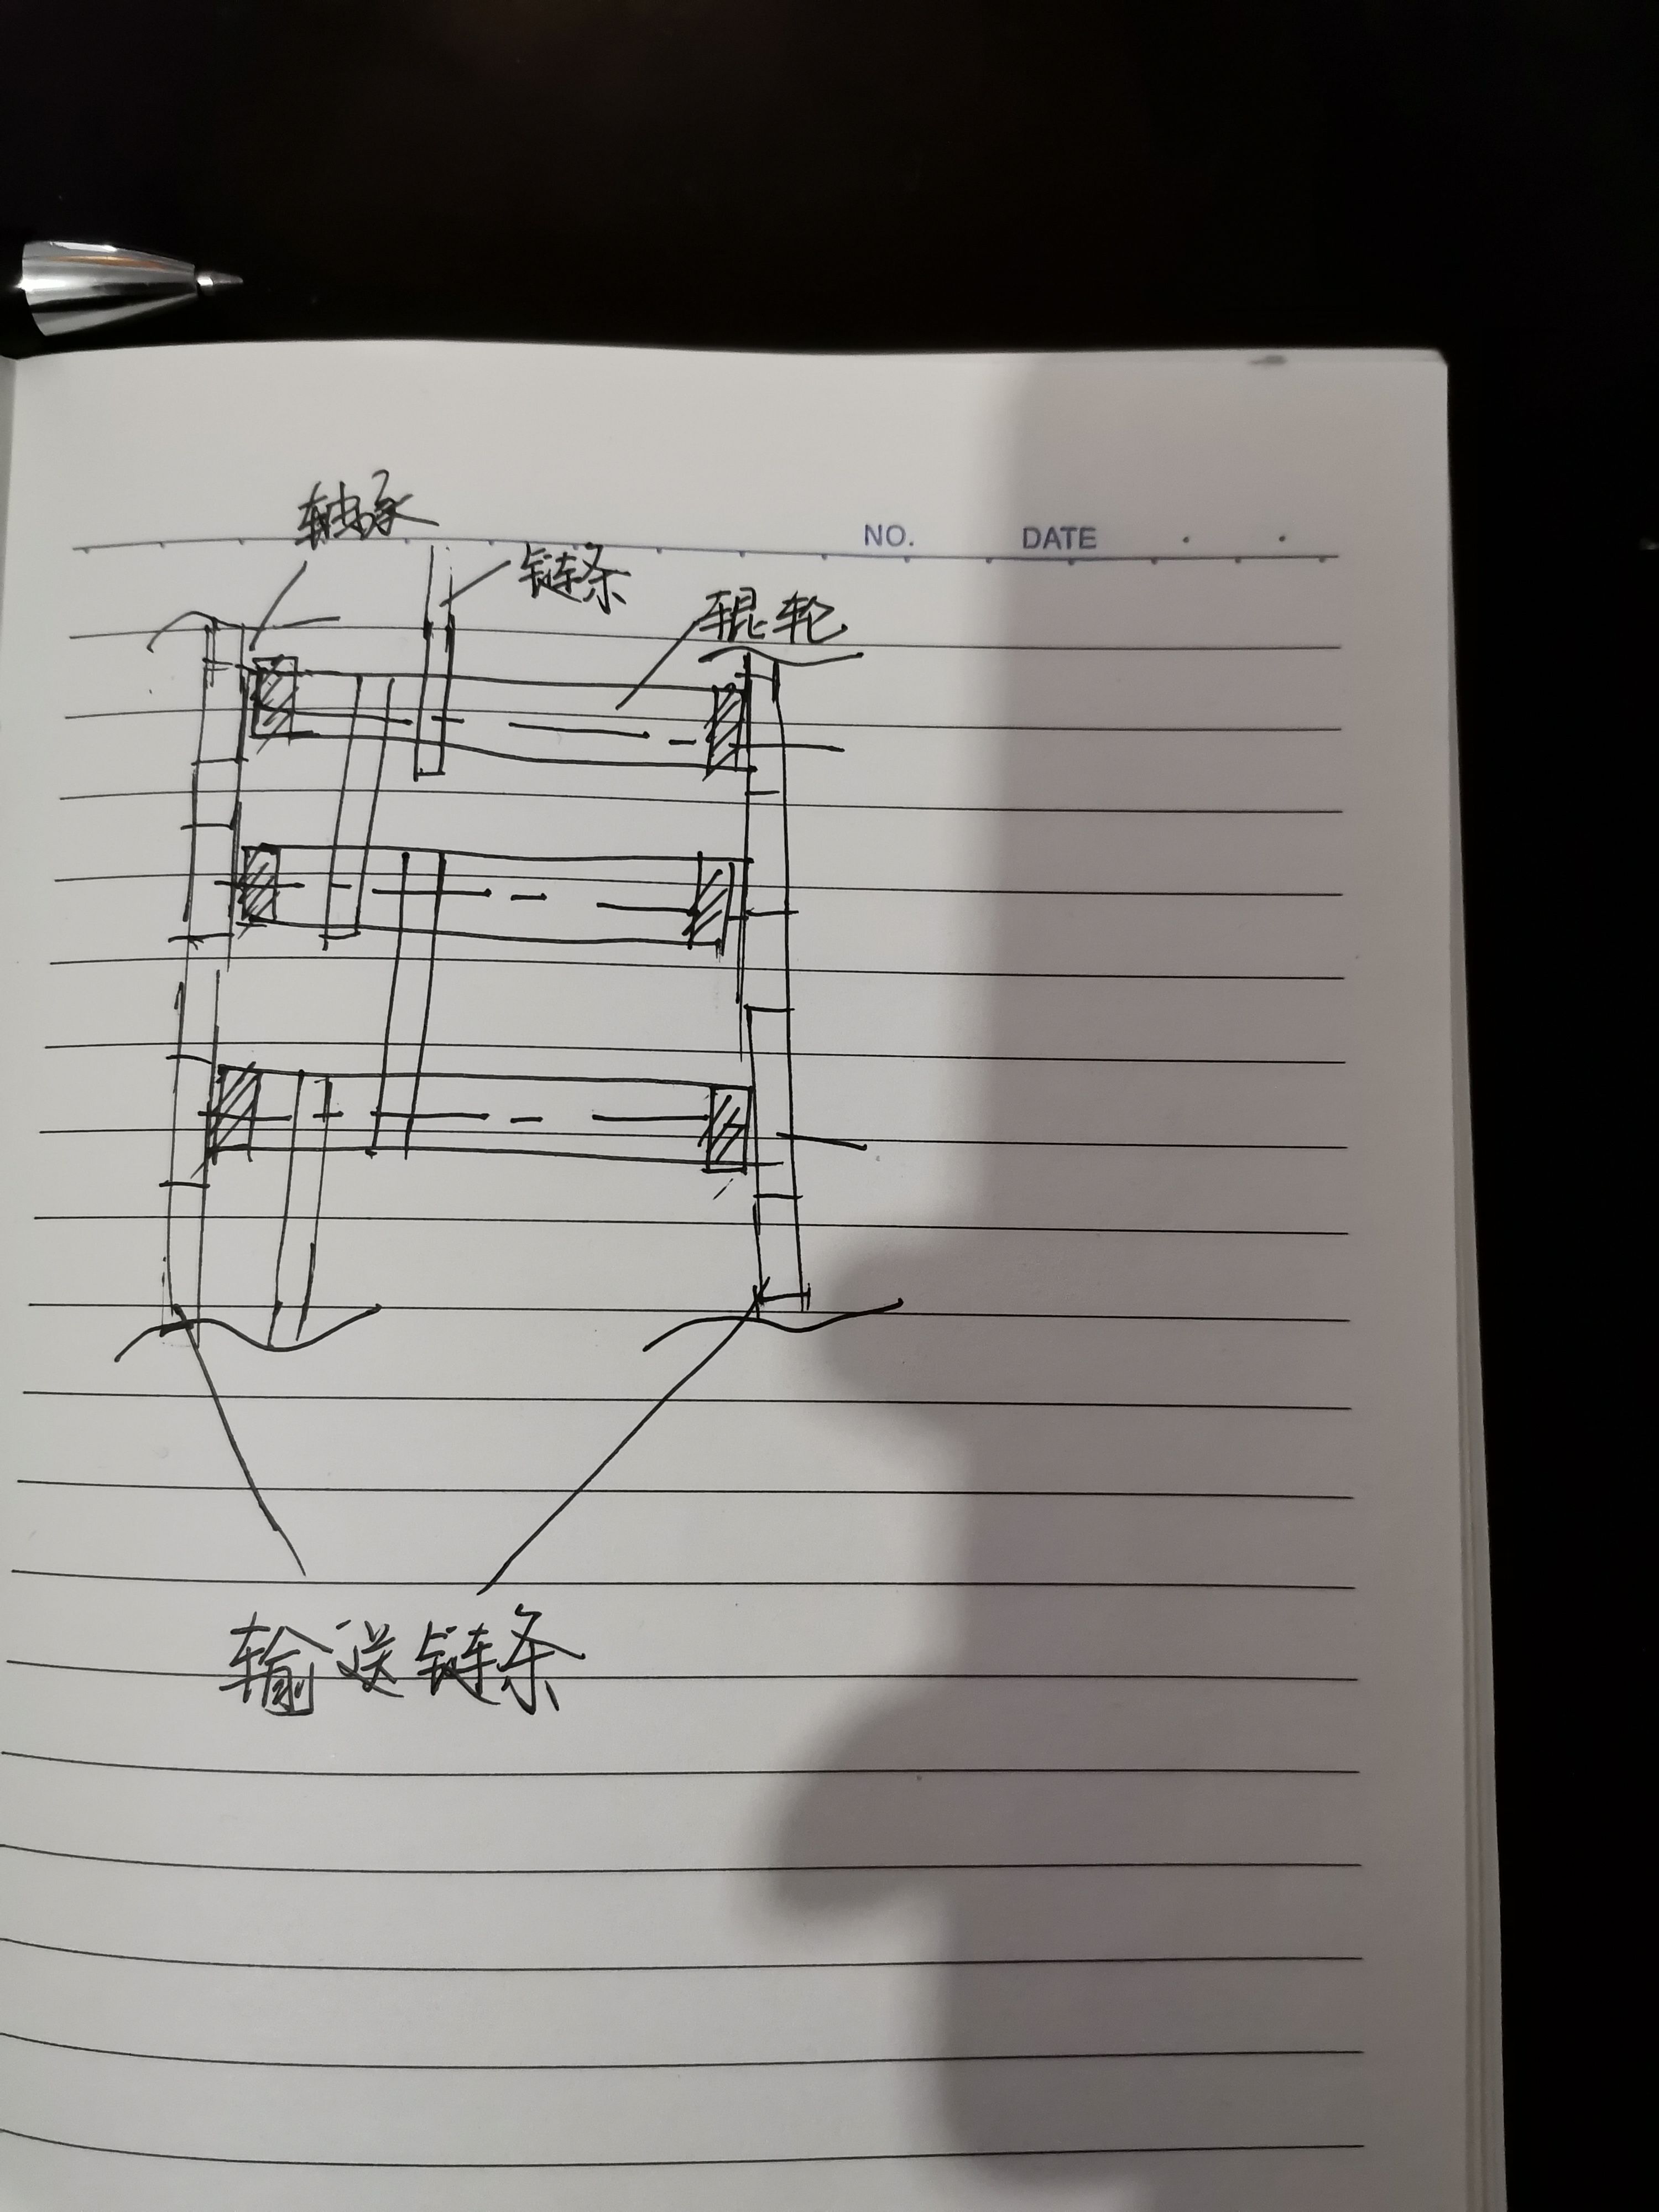 轴承
NO. DATE
链条
辊轮
输送链条